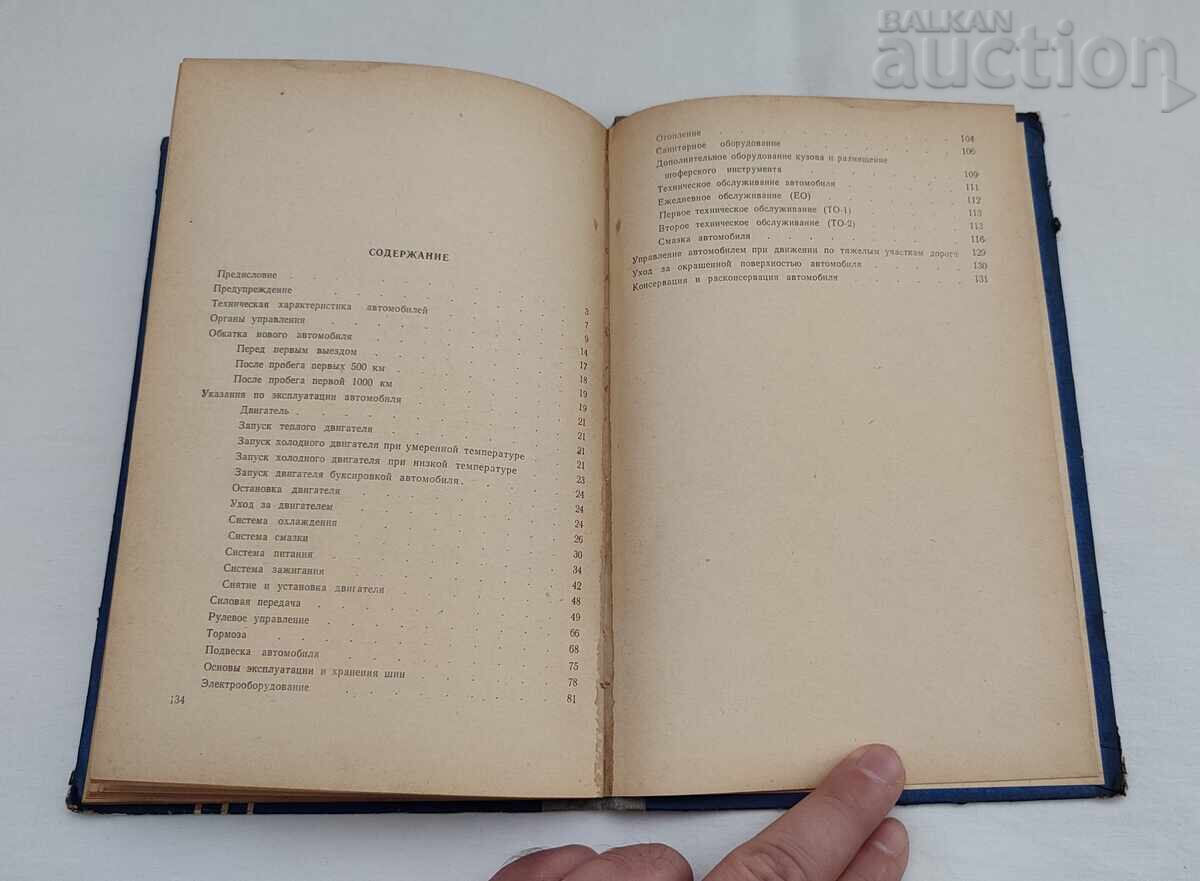 BALKAN
auction
СОДЕРЖАНИЕ
Предисловие . . . 3
Предупреждение . . . 7
Техническая характеристика автомобилей . . . 9
Органы управления . . . 14
Обкатка нового автомобиля . . . 17
Перед первым выездом . . . 18
После пробега первых 500 км . . . 19
После пробега первой 1000 км . . . 19
Указания по эксплуатации автомобиля . . . 21
Двигатель . . . 21
Запуск теплого двигателя . . . 21
Запуск холодного двигателя при умеренной температуре . . . 21
Запуск холодного двигателя при низкой температуре . . . 23
Запуск двигателя буксировкой автомобиля . . . 24
Остановка двигателя . . . 24
Уход за двигателем . . . 24
Система охлаждения . . . 26
Система смазки . . . 30
Система питания . . . 34
Система зажигания . . . 42
Снятие и установка двигателя . . . 48
Силовая передача . . . 49
Рулевое управление . . . 66
Тормоза . . . 68
Подвеска автомобиля . . . 75
Основы эксплуатации и хранения шин . . . 78
Электрооборудование . . . 81
134
Отопление . . . 104
Санитарное оборудование . . . 106
Дополнительное оборудование кузова и размещение
шоферского инструмента . . . 109
Техническое обслуживание автомобиля . . . 111
Ежедневное обслуживание (ЕО) . . . 112
Первое техническое обслуживание (ТО-1) . . . 113
Второе техническое обслуживание (ТО-2) . . . 113
Смазка автомобиля . . . 116
Управление автомобилем при движении по тяжелым участкам дороги 129
Уход за окрашенной поверхностью автомобиля . . . 130
Консервация и расконсервация автомобиля . . . 131